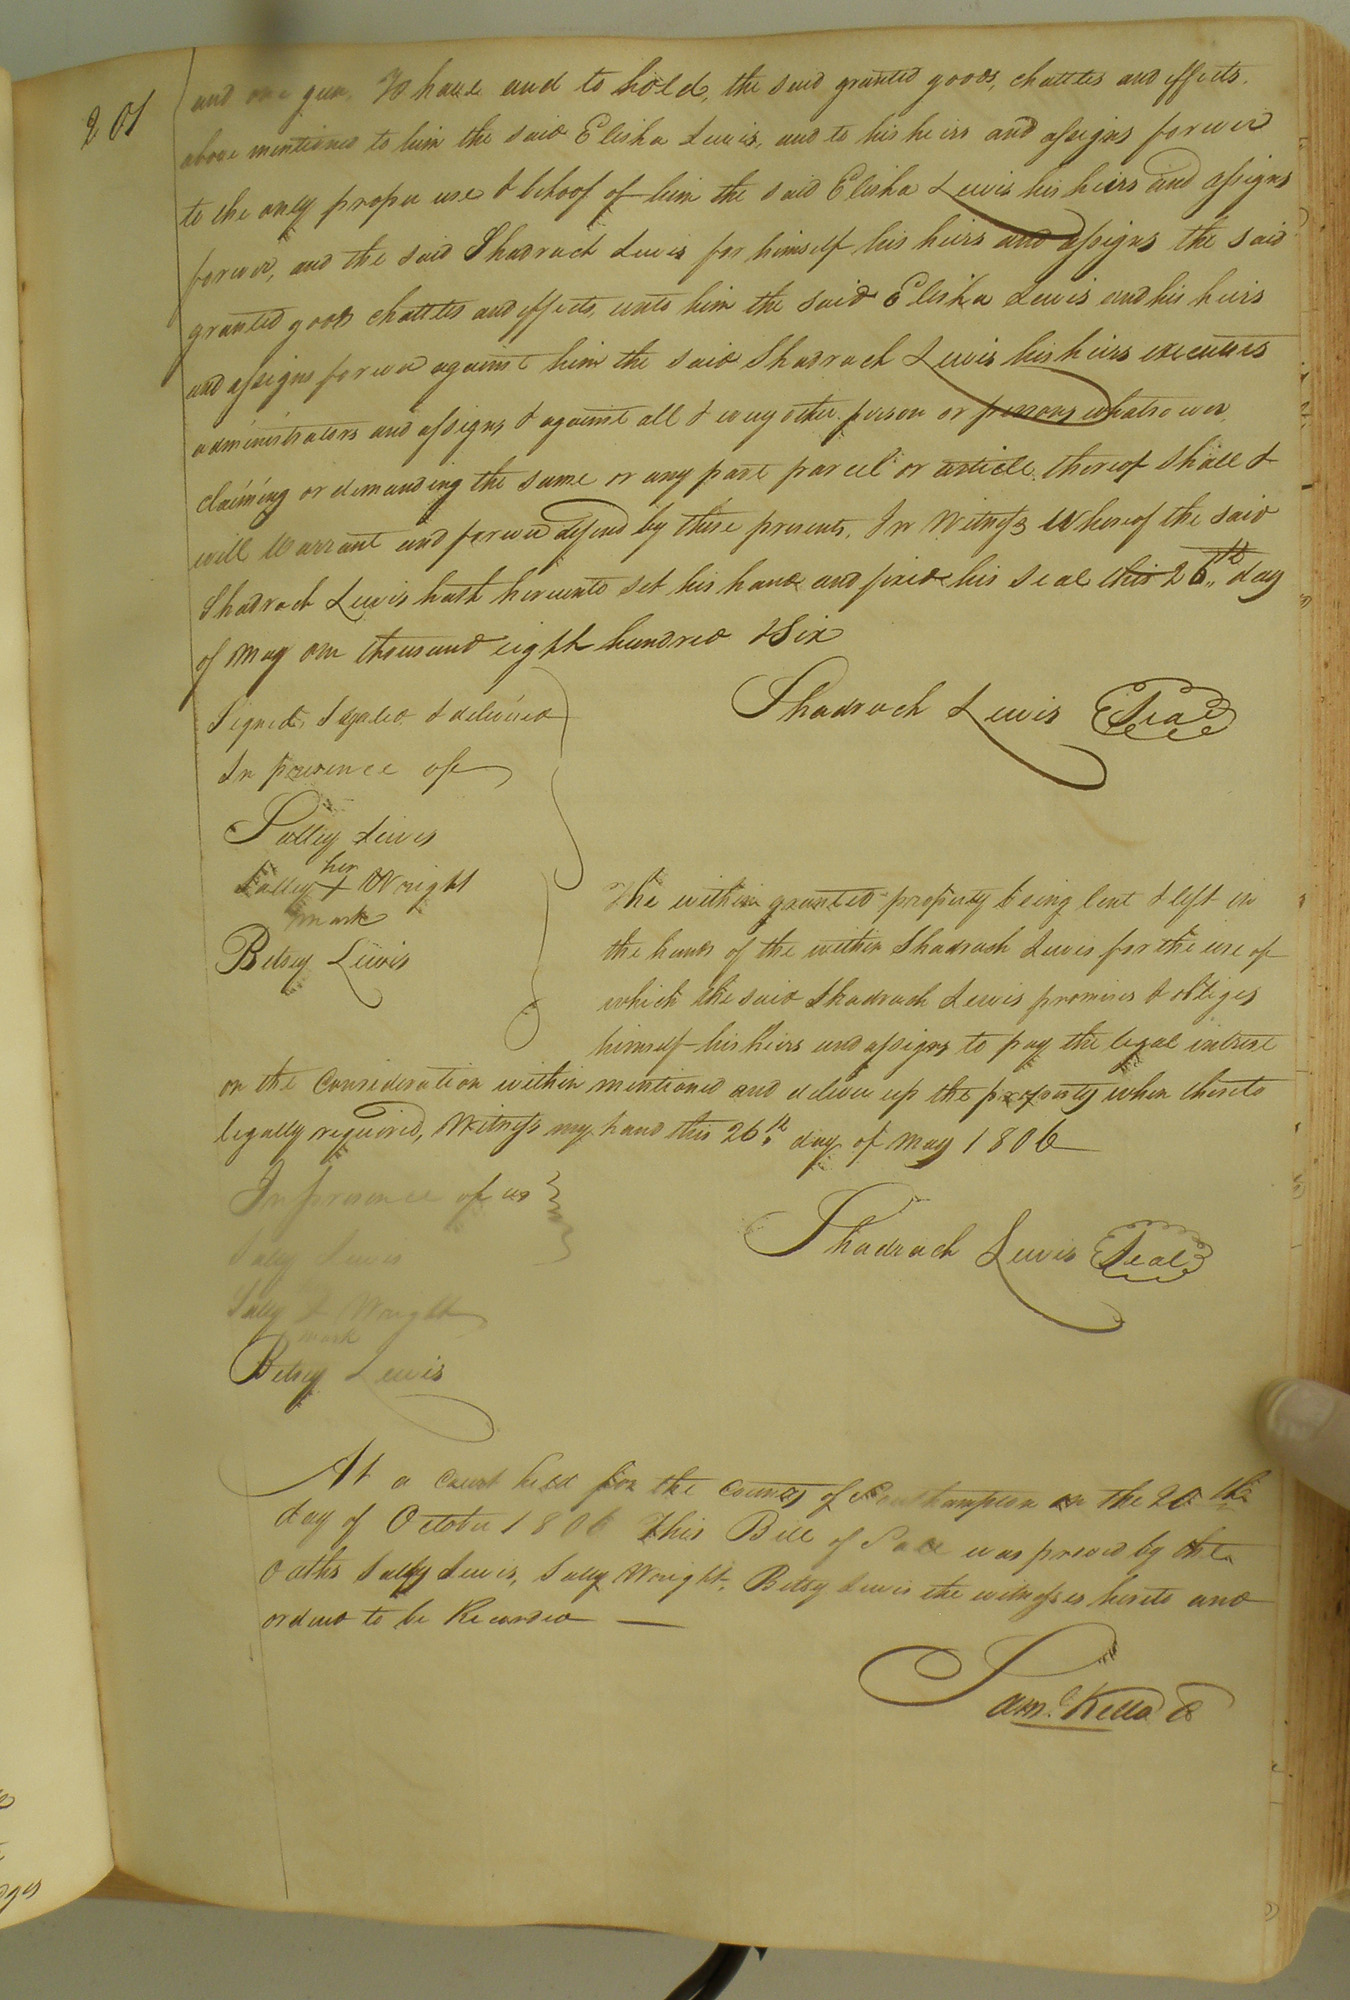 201
and one gun, To have and to hold, the said granted goods, chattles and effects.
above mentioned to him the said Elisha Lewis, and to his heirs and assigns forever
to the only proper use & behoof of him the said Elisha Lewis his heirs and assigns
forever, and the said Shadrach Lewis for himself his heirs and assigns the said
granted goods chattles and effects, unto him the said Elisha Lewis and his heirs
and assigns forever against him the said Shadrach Lewis his heirs executors
administrators and assigns & against all & every other person or persons whatsoever
claiming or demanding the same or any part parcel or article thereof shall &
will warrant and forever defend by these presents, In Witness Whereof the said
Shadrach Lewis hath hereunto set his hand and fixed his seal this 26th day
of May one thousand eight hundred & Six
Signed, Sealed & delivered
Shadrach Lewis Seal
In presence of
Salley Lewis
her
Salley + Wright
mark
Betsey Lewis
The within granted property being lent & left in
the hands of the within Shadrach Lewis for the use of
which the said Shadrach Lewis promises & obliges
himself his heirs and assigns to pay the legal intrest
on the consideration within mentioned and deliver up the property when thereto
legally required, Witness my hand this 26th day of May 1806
In presence of us
Shadrach Lewis Seal
Sally Lewis
Sally + Wright
mark
Betsey Lewis
At a Court held for the County of Southampton on the 20th
day of October 1806 This Bill of Sale was proved by the
oaths Sally Lewis, Sally Wright, Betsy Lewis the witnesses hereto and
ordered to be Recorded
Saml. Kello C